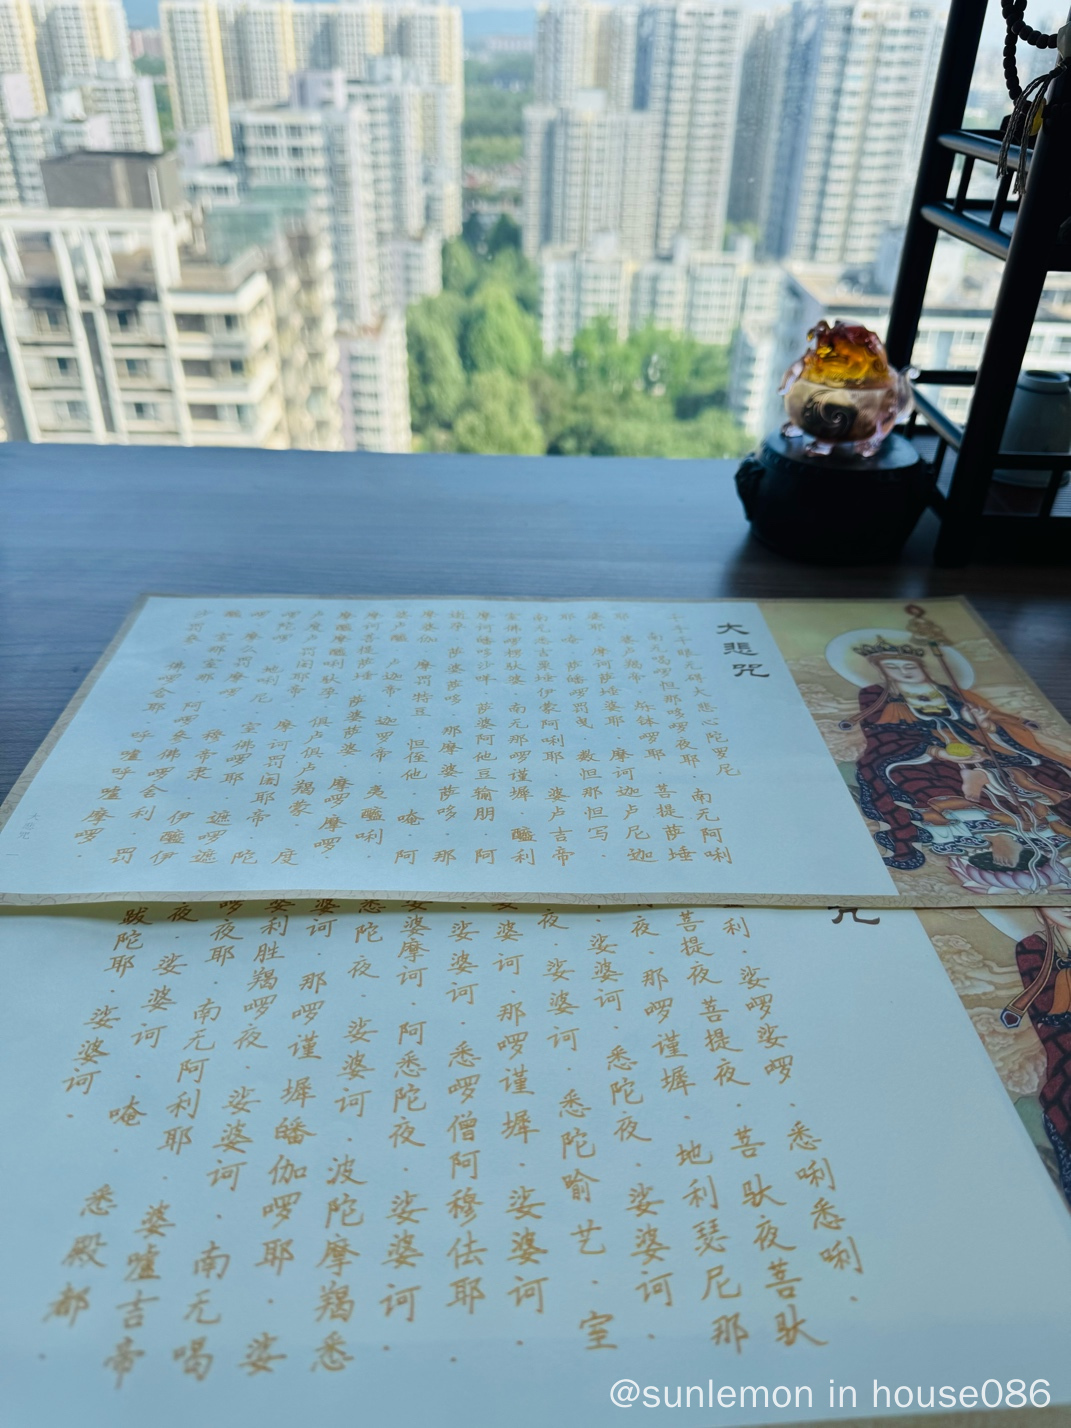 大悲咒
千手千眼无碍大悲心陀罗尼
南无喝啰怛那哆啰夜耶.南无阿唎
耶.婆卢羯帝.烁钵啰耶.菩提萨埵
婆耶.摩诃萨埵婆耶.摩诃迦卢尼迦
耶.唵.萨皤啰罚曳.数怛那怛写.
南无悉吉栗埵伊蒙阿唎耶.婆卢吉帝
室佛啰楞驮婆.南无那啰谨墀.醯利
摩诃皤哆沙咩.萨婆阿他豆输朋.阿
逝孕.萨婆萨哆.那摩婆萨哆.那
摩婆伽.摩罚特豆.怛侄他.唵.阿
婆醯.卢迦帝.迦罗帝.夷醯唎.
摩诃菩提萨埵.萨婆萨婆.摩啰摩啰.
摩醯摩醯唎驮孕.俱卢俱卢羯蒙.度
卢度卢罚闍耶帝.摩诃罚闍耶帝.陀
啰陀啰.地唎尼.室佛啰耶.遮啰遮
啰.摩么罚摩啰.穆帝隶.伊醯伊
醯.室那室那.阿啰参佛啰舍利.罚
沙罚参.佛啰舍耶.呼嚧呼嚧摩啰.
大悲咒
咒
利.娑啰娑啰.悉唎悉唎.
菩提夜菩提夜.菩驮夜菩驮
夜.那啰谨墀.地利瑟尼那
.娑婆诃.悉陀夜.娑婆诃.
夜.娑婆诃.悉陀喻艺.室
婆诃.那啰谨墀.娑婆诃.
娑婆诃.悉啰僧阿穆佉耶.
娑婆摩诃.阿悉陀夜.娑婆诃.
悉陀夜.娑婆诃.波陀摩羯悉
婆诃.那啰谨墀皤伽啰耶.娑
利胜羯啰夜.娑婆诃.南无喝
啰夜耶.南无阿利耶.婆嚧吉帝
夜.娑婆诃.唵.悉殿都.
跋陀耶.娑婆诃.
@sunlemon in house086